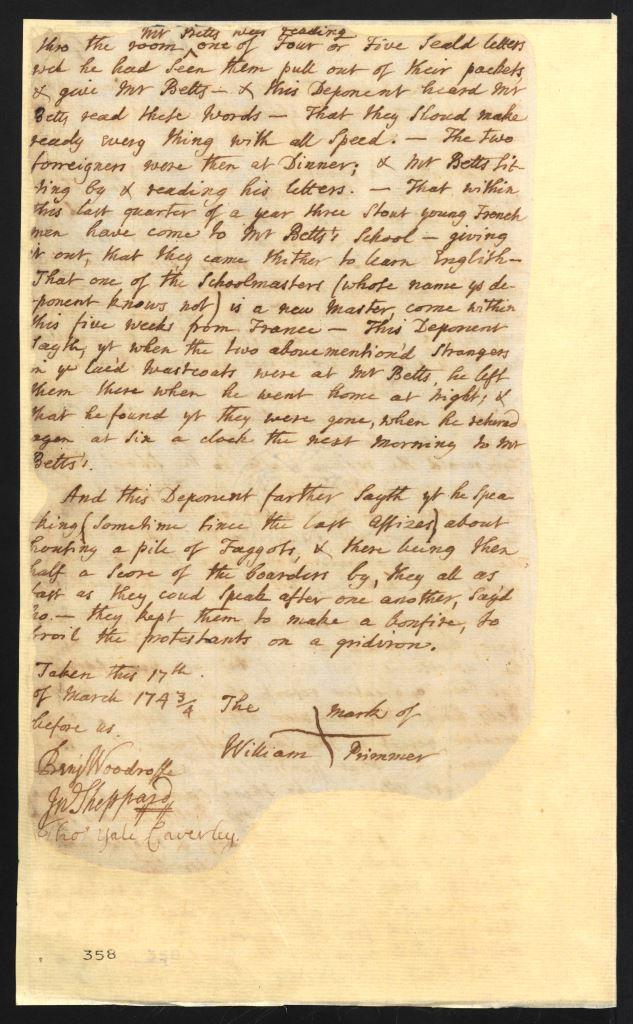 Mr Betts was reading
thro the room, one of Four or Five Seald letters
wch he had Seen them pull out of their pockets
& give Mr Betts – & this Deponent heard Mr
Betts read these Words – That they Shoud make
ready every thing with all Speed. – The two
forreigners were then at Dinner; & Mr Betts Sit-
ting by & reading his letters. – That within
this last quarter of a year three Stout young French
men have come to Mr Betts's School – giving
it out, that they came thither to learn English –
That one of the Schoolmasters (whose name ys de-
ponent knows not) is a new Master, come within
this five weeks from France – This Deponent
Sayth, yt when the two abovemention'd Strangers
in ye lac'd Wastcoats were at Mr Betts, he left
them there when he went home at night; &
that he found yt they were gone, when he returnd
agen at Six a clock the next morning to Mr
Betts's.
And this Deponent farther Sayth yt he Spea
king (Sometime Since the last Assizes) about
housing a pile of Faggots, & there being then
half a Score of the boarders by, they all as
fast as they coud Speak after one another, Sayd
no. – they kept them to make a bonfire, to
broil the protestants on a gridiron.
Taken this 17th.
of March 174 3/4
before us.
The mark of
William Primmer
Benj Woodroffe
Jno Sheppard
Thos Yale Caverley.
358